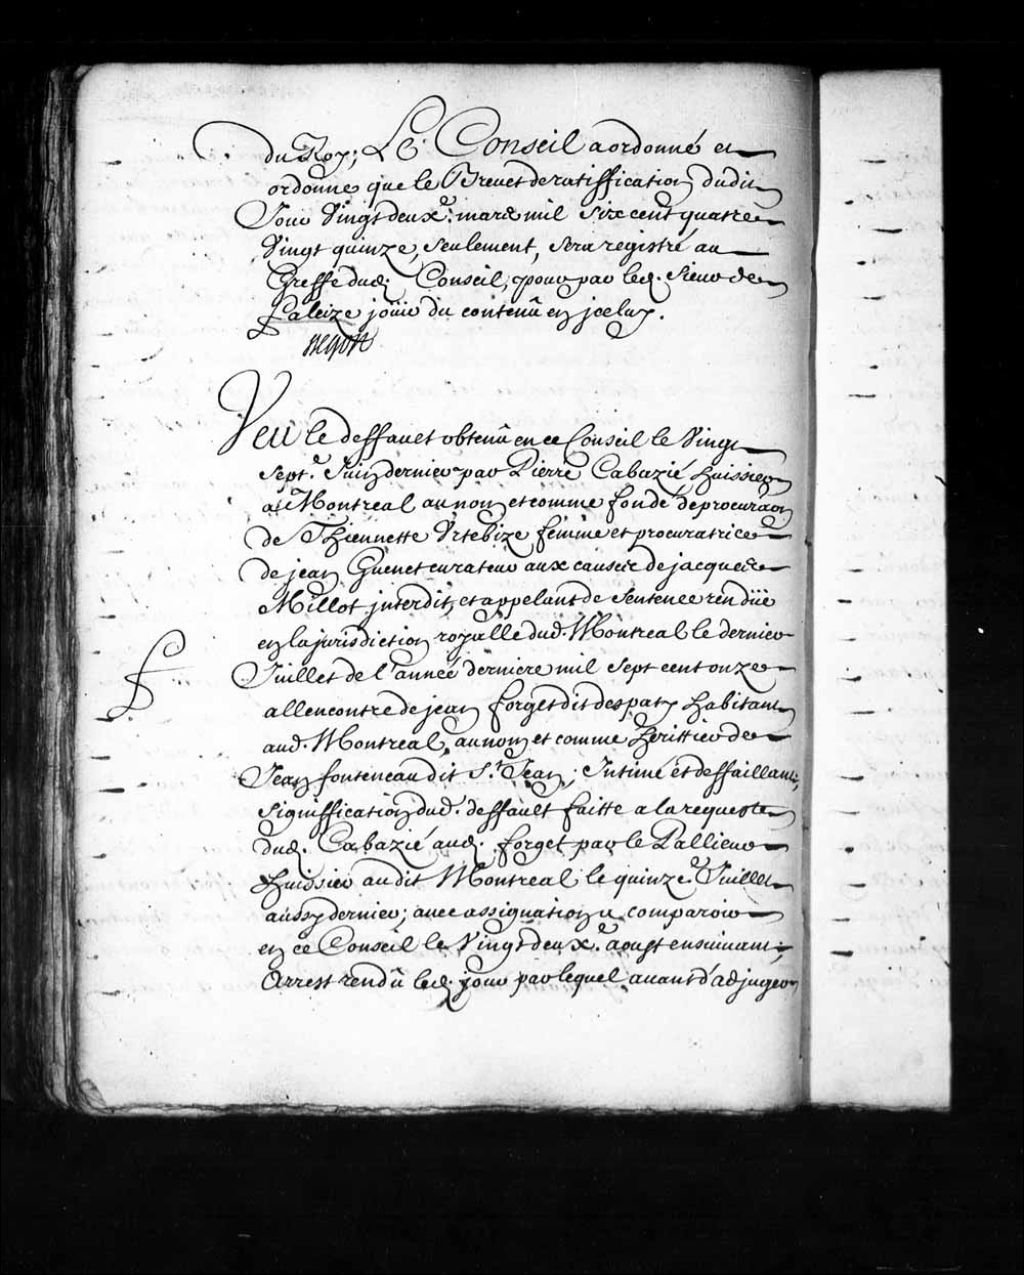 du Roy; Le Conseil a ordonné et
ordonne que le Brevet de ratiffication dudit
Jour Vingt deuxe. mars mil six cent quatre
Vingt quinze, seulement, sera registré au
Greffe dud. Conseil, pour par led. Sieur de
Falaize jouir du contenû en jceluy.
Begon
Veu le deffault obtenû en ce Conseil le Vingt
Sept.e Juin dernier par Pierre Cabazié huissier
a Montreal au nom et comme fondé de procuraon
de Thiennette Urtebize femme et procuratrice
de jean Guenet curateur aux causes de jacques
Millot jnterdit, et appelant de Sentence rendüe
en la jurisdiction royalle dud. Montreal le dernier
Juillet de l'année derniere mil Sept cent onze
allencontre de jean forget dit despaty habitant
aud. Montreal, au nom et comme heritier de
Jean fonteneau dit St. Jean, Intimé et deffaillant;
Signiffication dud. deffault faitte a la requeste
dud. Cabazié aud. forget par le Pallieur
huissier audit Montreal le quinze.e Juillet
aussy dernier; avec assignation a comparoir
en ce Conseil le Vingt deuxe. aoust ensuivant;
Arrest rendû led. jour par lequel avant d'adjuger